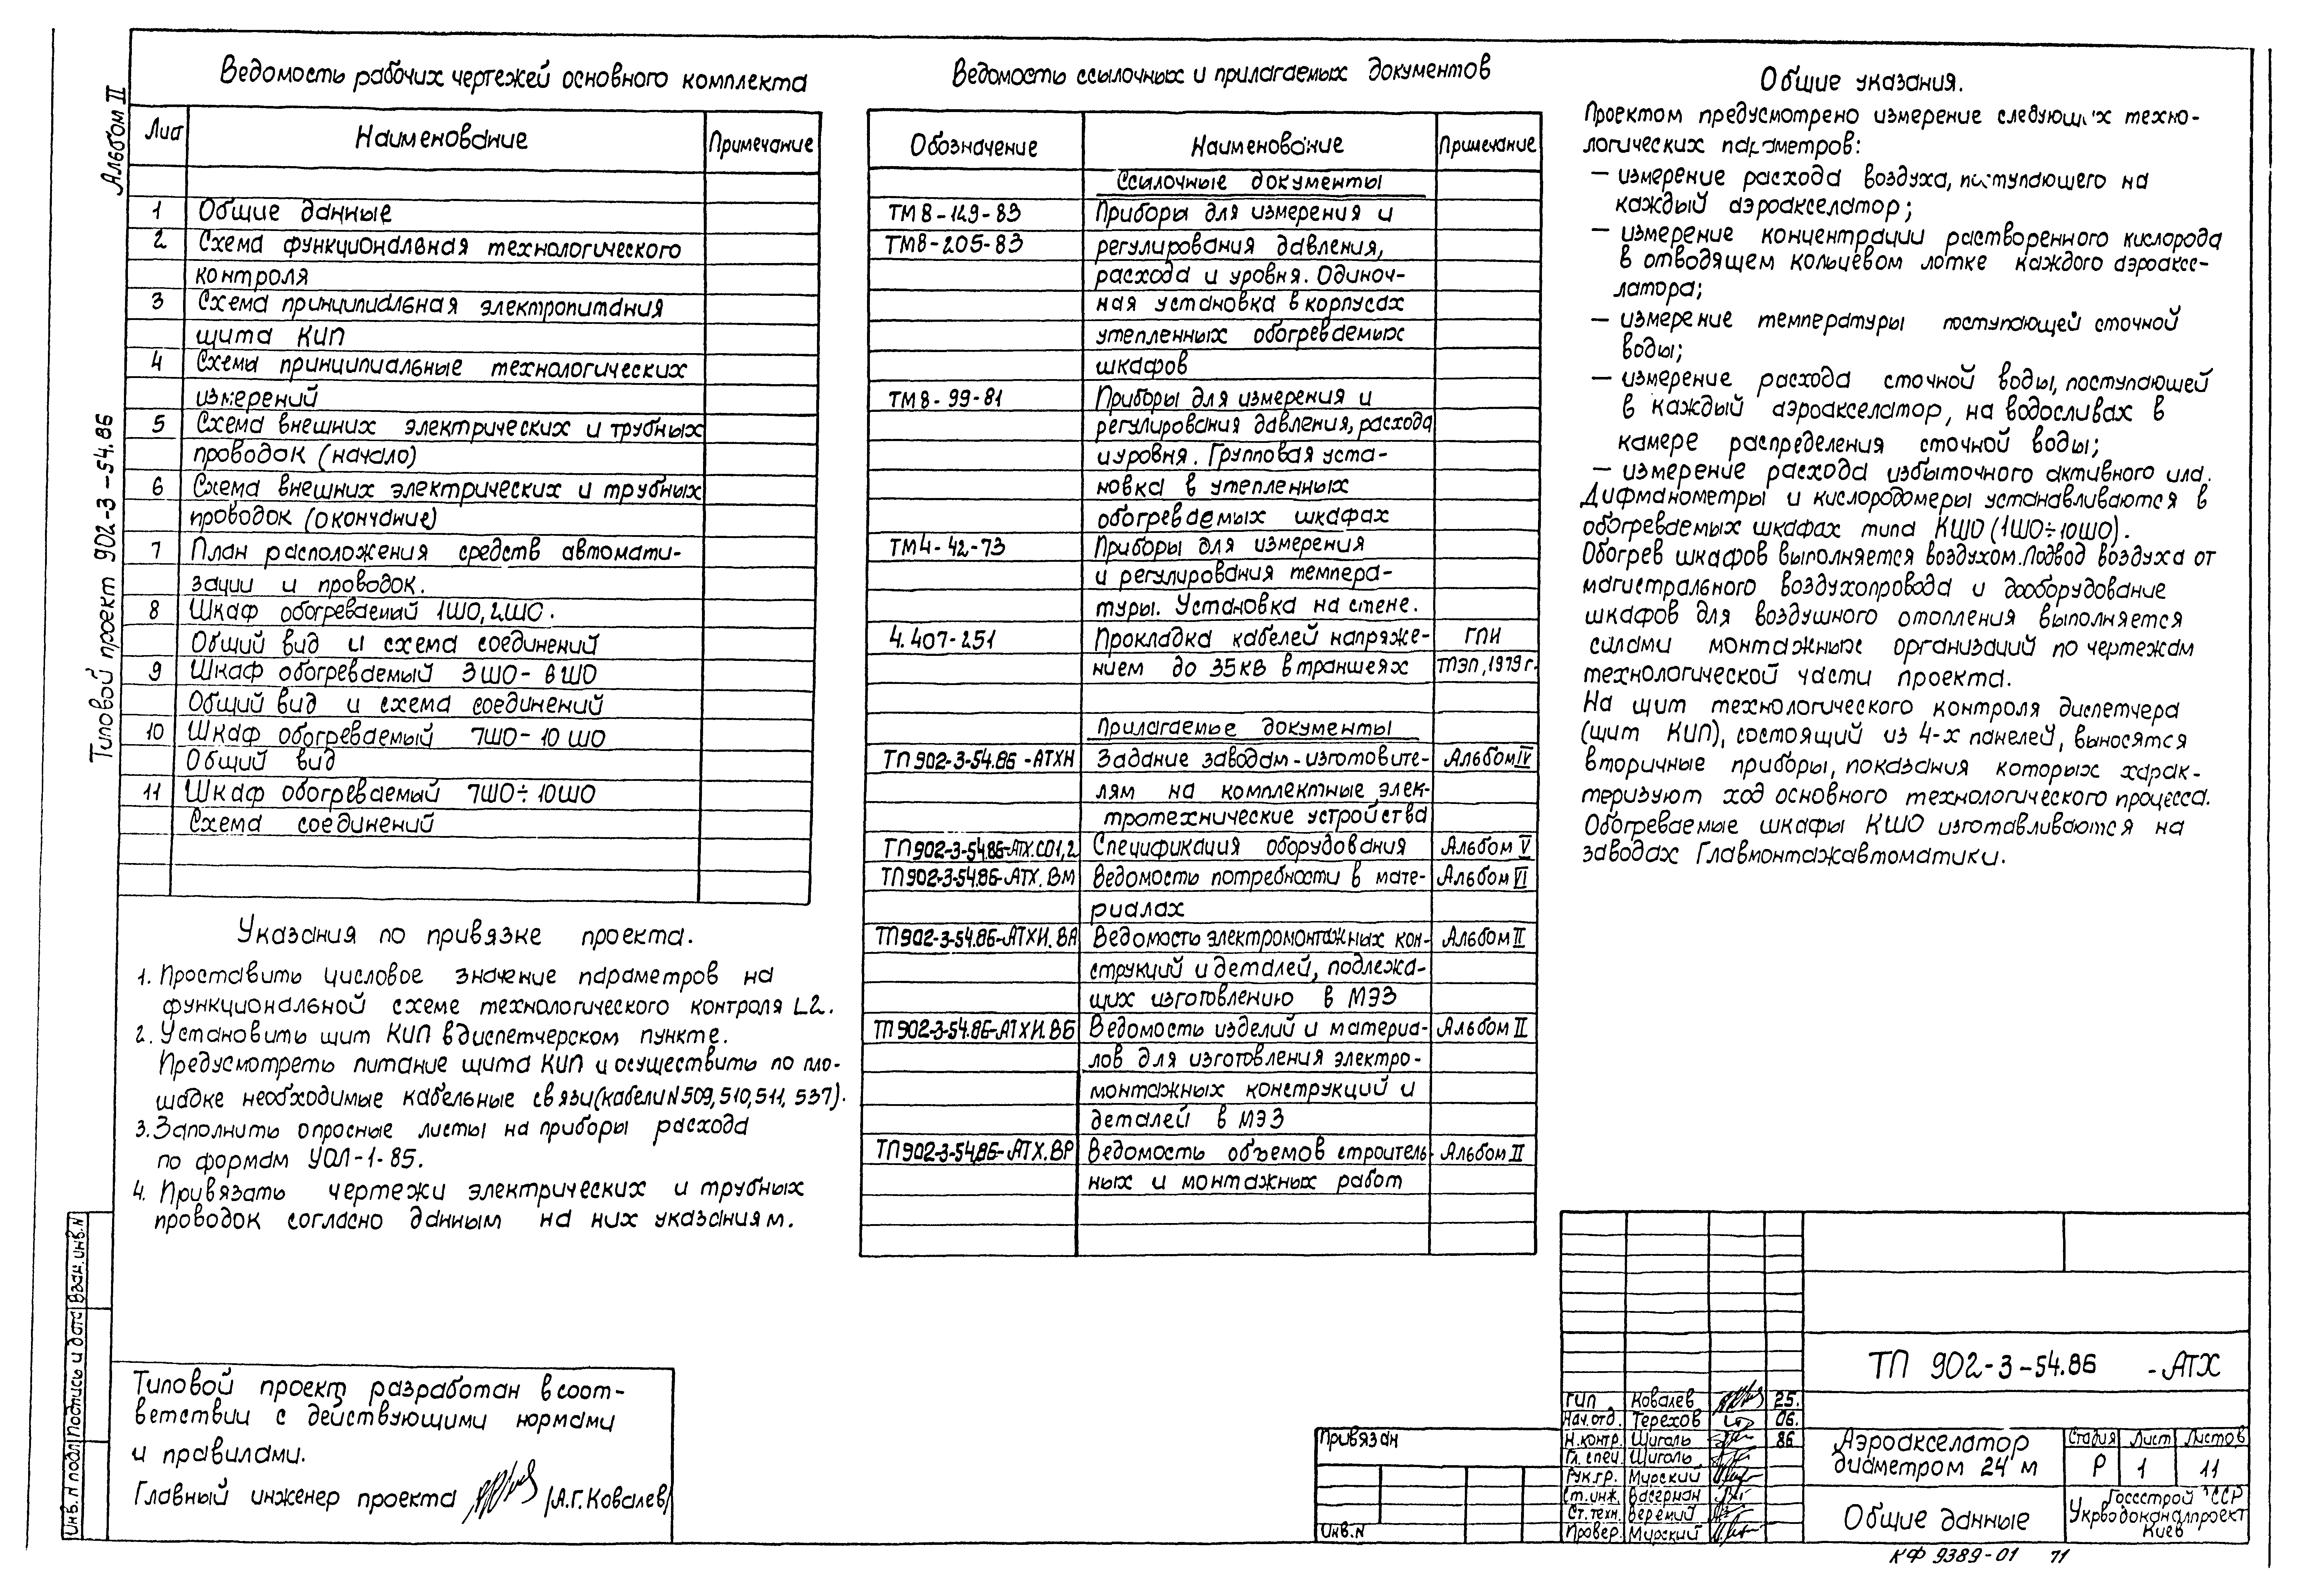 Альбом II
Типовой проект 902-3-54.86
Ведомость рабочих чертежей основного комплекта
Лист Наименование Примечание
1 Общие данные
2 Схема функциональная технологического
контроля
3 Схема принципиальная электропитания
щита КИП
4 Схема принципиальные технологических
измерений
5 Схема внешних электрических и трубных
проводок (начало)
6 Схема внешних электрических и трубных
проводок (окончание)
7 План расположения средств автомати-
зации и проводок.
8 Шкаф обогреваемый 1ШО, 2ШО.
Общий вид и схема соединений
9 Шкаф обогреваемый 3ШО-6ШО
Общий вид и схема соединений
10 Шкаф обогреваемый 7ШО-10ШО
Общий вид
11 Шкаф обогреваемый 7ШО÷10ШО
Схема соединений
Указания по привязке проекта.
1. Проставить числовое значение параметров на
функциональной схеме технологического контроля L2.
2. Установить щит КИП в диспетчерском пункте.
Предусмотреть питание щита КИП и осуществить по пло-
щадке необходимые кабельные связи (кабели N 509, 510, 511, 537).
3. Заполнить опросные листы на приборы расхода
по формам УОЛ-1-85.
4. Привязать чертежи электрических и трубных
проводок согласно данным на них указаниям.
Типовой проект разработан в соот-
ветствии с действующими нормами
и правилами.
Главный инженер проекта /А.Г.Ковалев/
Ведомость ссылочных и прилагаемых документов
Обозначение Наименование Примечание
Ссылочные документы
ТМ8-149-83 Приборы для измерения и
ТМ8-205-83 регулирования давления,
расхода и уровня. Одиноч-
ная установка в корпусах
утепленных обогреваемых
шкафов
ТМ8-99-81 Приборы для измерения и
регулирования давления, расхода
и уровня. Групповая уста-
новка в утепленных
обогреваемых шкафах
ТМ4-42-73 Приборы для измерения
и регулирования темпера-
туры. Установка на стене.
4.407-251 Прокладка кабелей напряже- ГПИ
нием до 35кВ в траншеях ТПЭП, 1979г.
Прилагаемые документы
ТП902-3-54.86-АТХН Задание заводам-изготовите- Альбом IV
лям на комплектные элек-
тротехнические устройства
ТП902-3-54.86-АТХ.СО1,2 Спецификация оборудования Альбом V
ТП902-3-54.86-АТХ.ВМ Ведомость потребности в мате- Альбом VI
риалах
ТП902-3-54.86-АТХИ.ВА Ведомость электромонтажных кон- Альбом II
струкций и деталей, подлежа-
щих изготовлению в МЭЗ
ТП902-3-54.86-АТХИ.ВБ Ведомость изделий и материа- Альбом II
лов для изготовления электро-
монтажных конструкций и
деталей в МЭЗ
ТП902-3-54.86-АТХ.ВР Ведомость объемов строитель- Альбом II
ных и монтажных работ
Общие указания.
Проектом предусмотрено измерение следующих техно-
логических параметров:
— измерение расхода воздуха, поступающего на
каждый аэроакселатор;
— измерение концентрации растворенного кислорода
в отводящем кольцевом лотке каждого аэроаксе-
латора;
— измерение температуры поступающей сточной
воды;
— измерение расхода сточной воды, поступающей
в каждый аэроакселатор, на водосливах в
камере распределения сточной воды;
— измерение расхода избыточного активного ила.
Дифманометры и кислородомеры устанавливаются в
обогреваемых шкафах типа КШО (1ШО÷10ШО).
Обогрев шкафов выполняется воздухом. Подвод воздуха от
магистрального воздухопровода и дооборудование
шкафов для воздушного отопления выполняется
силами монтажных организаций по чертежам
технологической части проекта.
На щит технологического контроля диспетчера
(щит КИП), состоящий из 4-х панелей, выносятся
вторичные приборы, показания которых харак-
теризуют ход основного технологического процесса.
Обогреваемые шкафы КШО изготавливаются на
заводах Главмонтажавтоматики.
Инв.N подл Подпись и дата Взам.инв.N
Привязан
Инв.N
ТП 902-3-54.86 -АТХ
ГИП Ковалев 25.
Нач.отд. Терехов 06.
Н.контр. Шигаль 86
Гл.спец. Шигаль
Рук.гр. Мирский
Ст.инж. Васерман
Ст.техн. Веремий
Провер. Мирский
Аэроакселатор
диаметром 24 м
Стадия Лист Листов
Р 1 11
Общие данные
Госстрой СССР
Укрводоканалпроект
Киев
КФ 9389-01 71